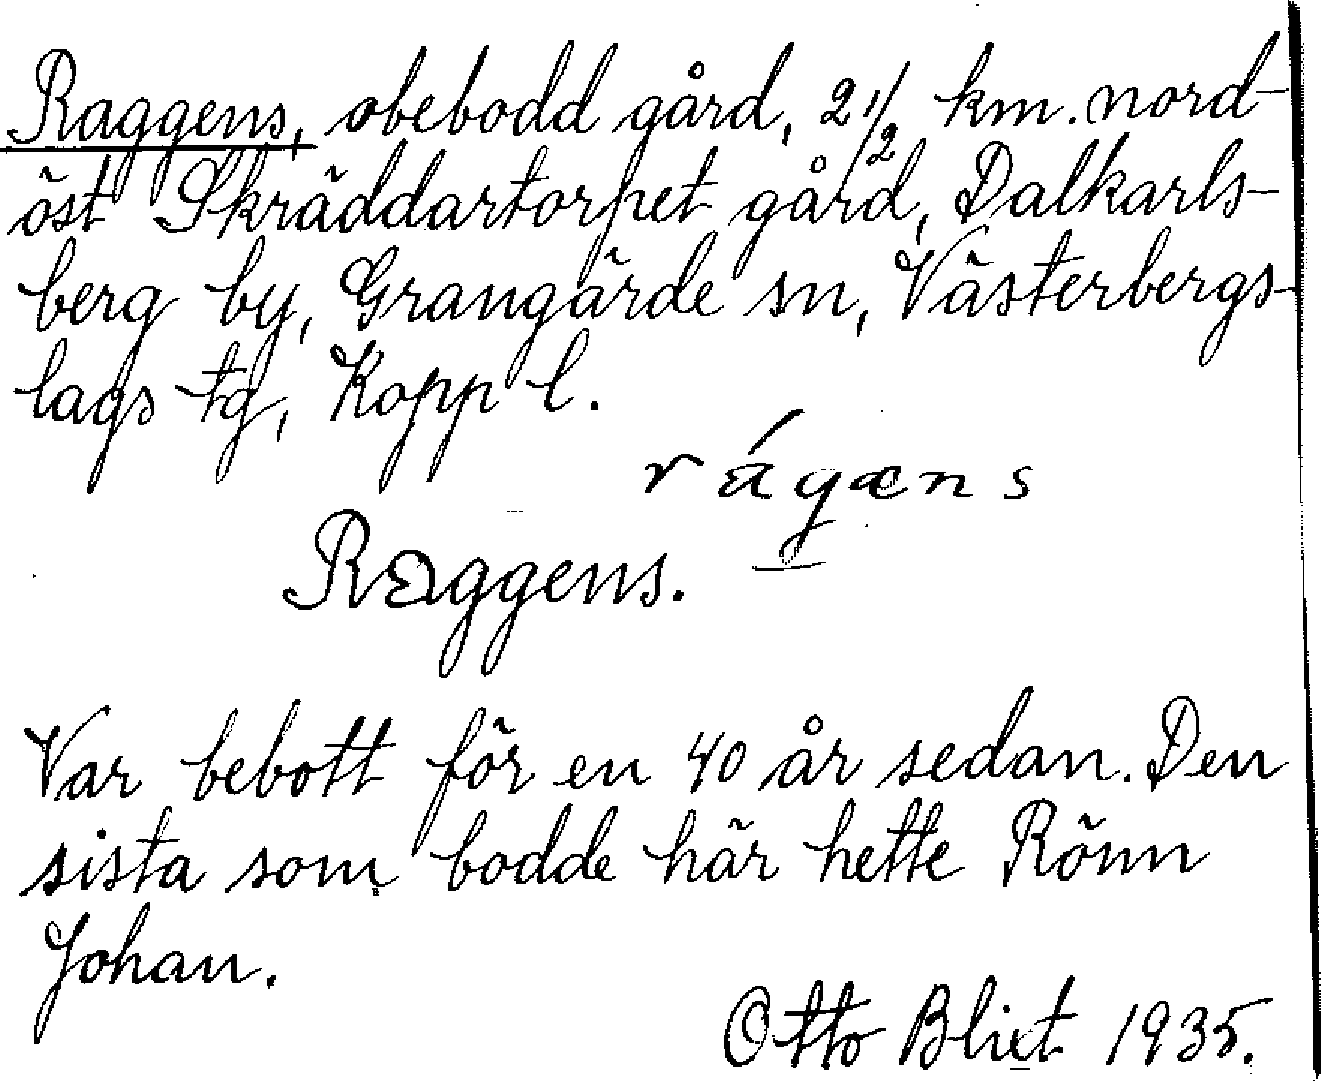 Raggens, obebodd gård, 2 1/2 km. nord-
öst Skräddartorpet gård, Dalkarls-
berg by, Grangärde sn, Västerbergs-
lags tg, Kopp l.
rágæns
Raggens.
Var bebott för en 40 år sedan. Den
sista som bodde här hette Rönn
Johan.
Otto Blixt 1935.